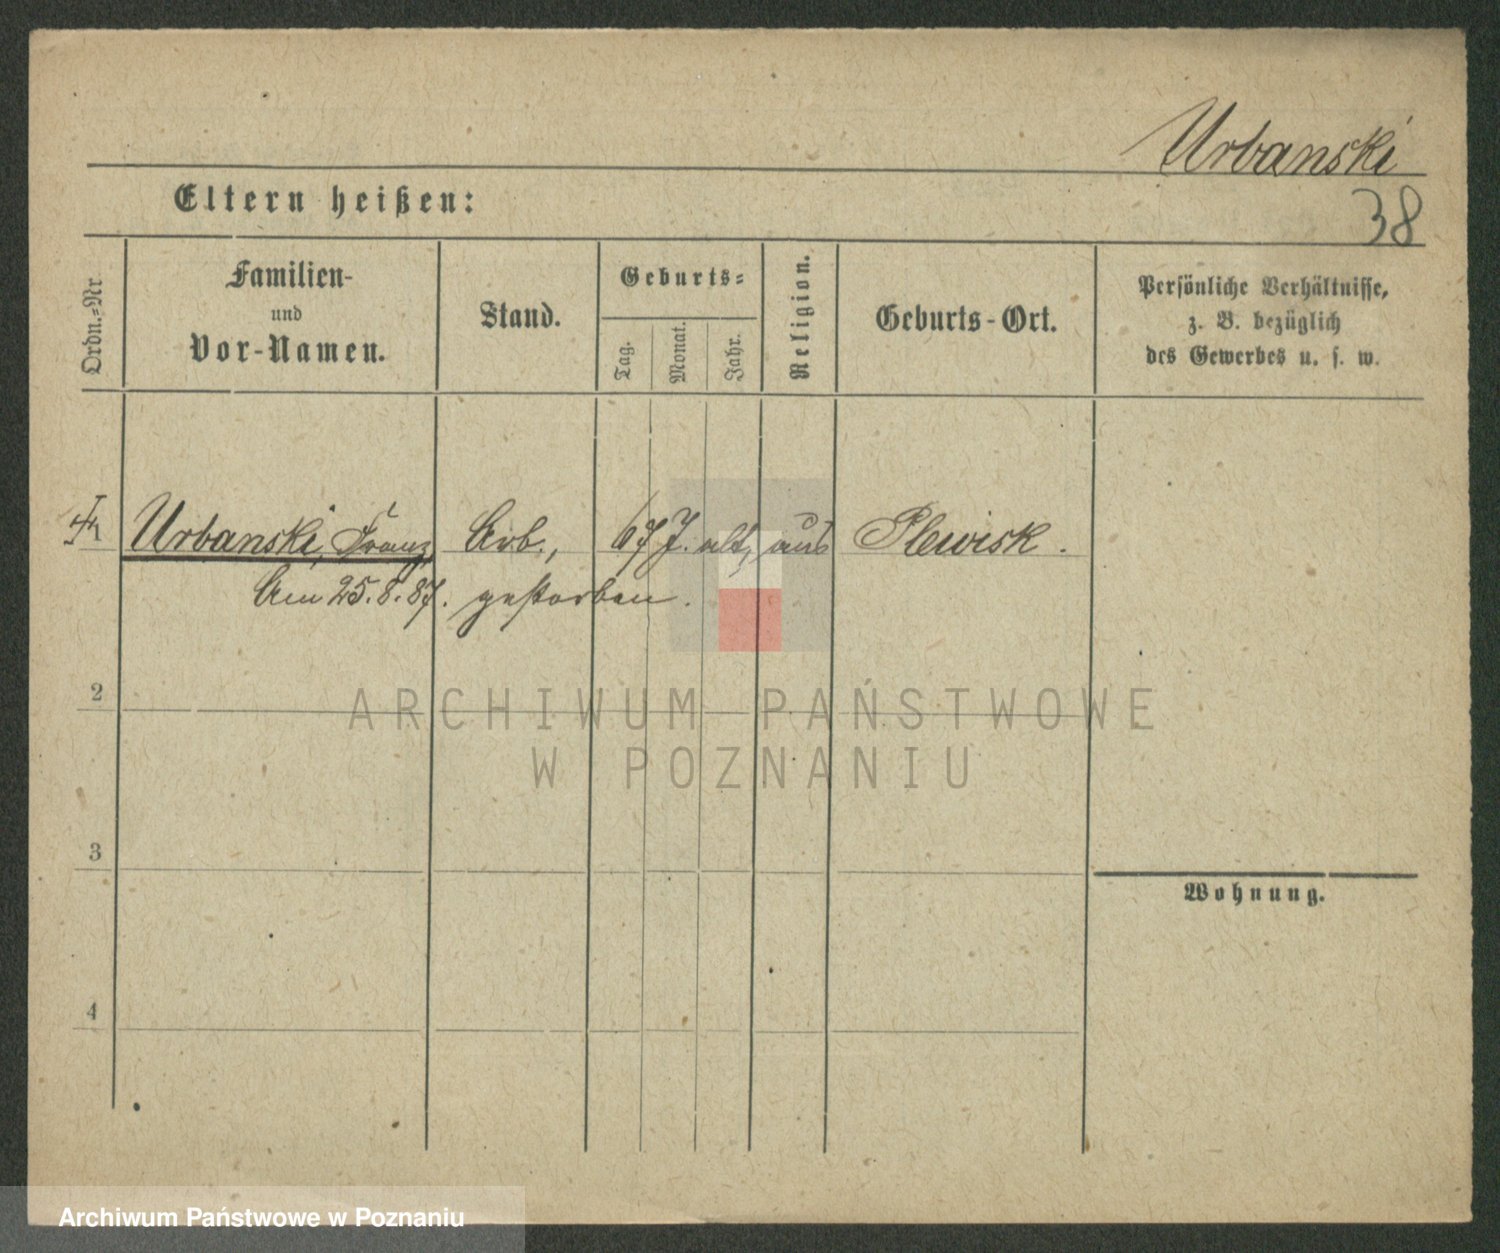 Urbanski
38
Eltern heißen:
Ordn.-Nr
Familien-
und
Vor-Namen.
Stand.
Geburts-
Tag.
Monat.
Jahr.
Religion.
Geburts-Ort.
Persönliche Verhältnisse,
z. B. bezüglich
des Gewerbes u. s. w.
Urbanski, Franz Arb., 67 J. alt, aus Plewisk.
Am 25.8.87. gestorben.
2
3
4
Wohnung.
ARCHIWUM PAŃSTWOWE
W POZNANIU
Archiwum Państwowe w Poznaniu